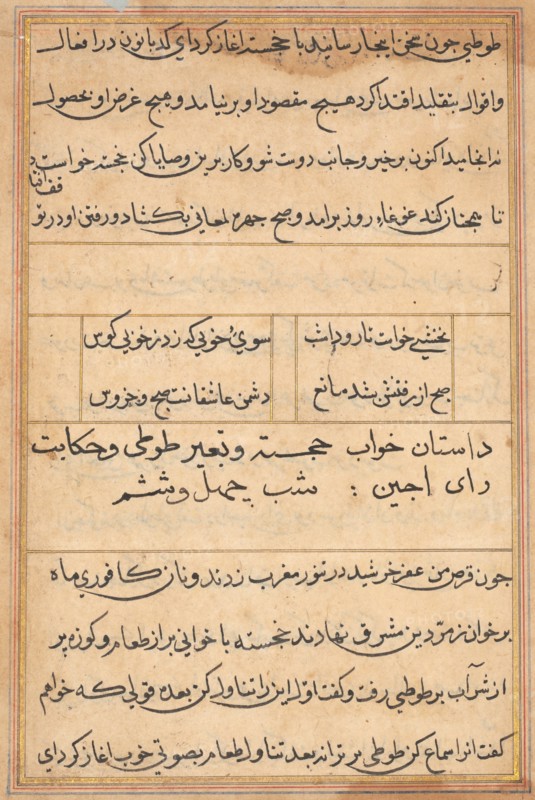 طوطی چون سخن اینجا رسانید با خجسته اغاز کرد ای کدبانو در افعال
و اقوال بتقلید اقتدا کرد هیچ مقصود او بر نیامد و هیچ غرض او بحصول
نه انجامید اکنون برخیر و جانب دوست شو و کار برین وصایا کن خجسته خواست
تا همچنان کند غوغاء روز برامد و صبح چهره بکشاد و رفتن او در
نخشبی خواست تا رود امشب
سوی خوبی که زد ز خوبی کوس
صبح از رفتنش بشد مانع
دشمن عاشقانست صبح و خروس
داستان خواب خجسته و تعبیر طوطی و حکایت
رای اجین : شب چهل و ششم
چون قرص خرشید در تنور مغرب زدند و نان کافوری ماه
بر خوان زمردین مشرق نهادند خجسته با خوانی پر از طعام و کوزه پر
از شراب بر طوطی رفت و کفت اول این را تناول کن بعده قولی که خواهم
کفت انرا سماع کن طوطی بعد تناول طعام بصوتی خوب اغاز کرد ای